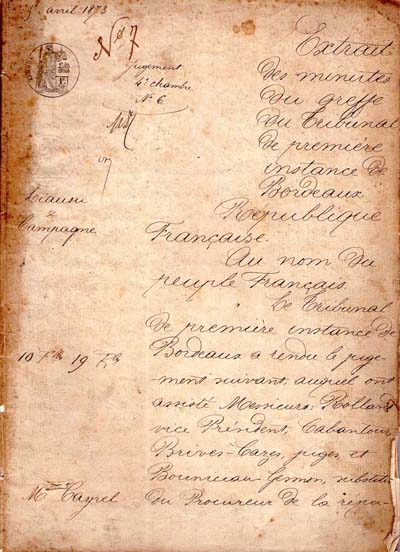 5 avril 1873
No 7
Jugement
4e chambre
No 6
Extrait
des minutes
du greffe
du Tribunal
de première
instance de
Bordeaux
République
Française.
Au nom du
peuple Français.
Le Tribunal
de première instance de
Bordeaux a rendu le juge-
-ment suivant, auquel ont
assisté Messieurs: Rolland
vice Président, Cabantous,
Brives-Cazes, juges, et
Bouniceau-Gesmon, substitut
du Procureur de la répu-
Campagne
10 19